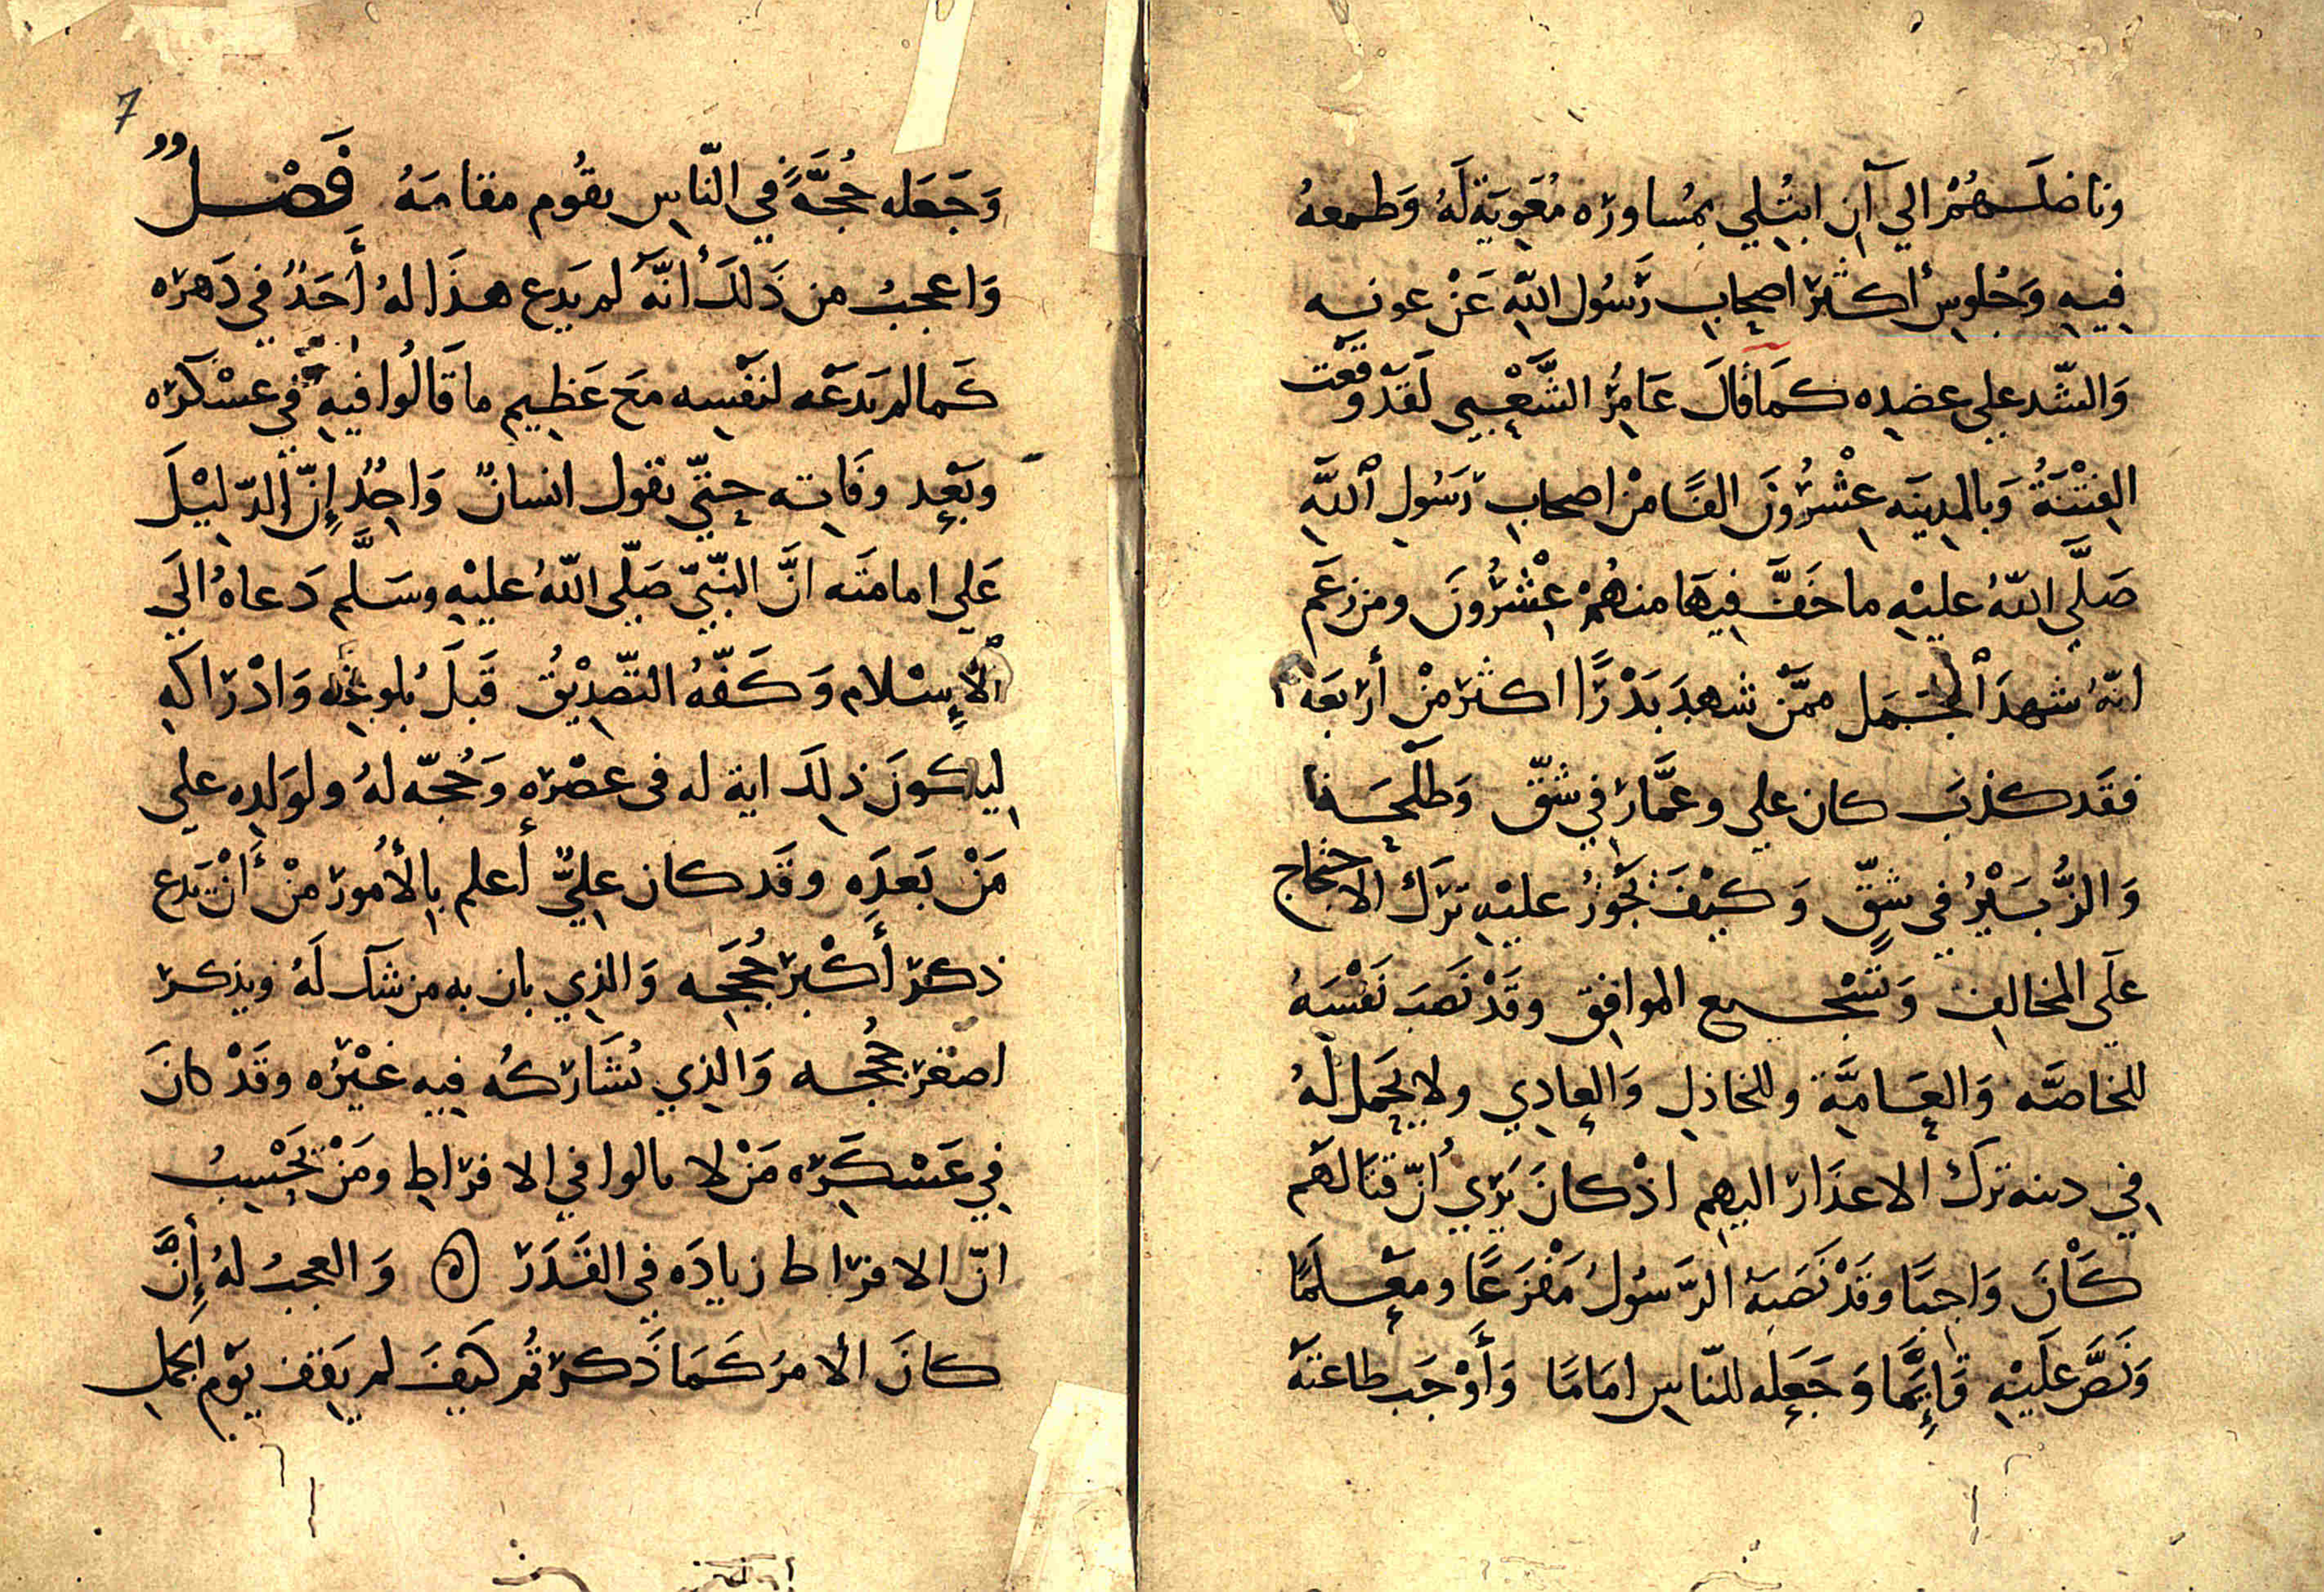 وناضلهُمْ الي آن ابتُلِي بمُساوره مُعٰوِيَة لَهُ وَطمعهُ
فِيهِ وَجُلوسِ أكثر اصحابِ رَسُول اللهِ عَنْ عونه
وَالشّد علي عضدِه كمَا قَالَ عَامِرُ الشَّعْبِي لَقَدْ وقَعَت
الفِتْنَةُ وَبالمدِينَه عِشْرُونَ الفًا مِنْ اصحابِ رَسُولِ اللَّهِ
صَلَّي اللهُ عليْهِ ما خَفَّ فِيهَا منهُمْ عِشْرُونَ ومن زعَم
انهُ شهدَ الْجَمَل ممَّنْ شهدَ بَدْرًا اكثر مِنْ أربَعَه
فقَد كذبَ كان علي وعمَّار في شقّ وَطلْحَه
وَالزُّبَيْرُ في شقٍّ وَكيْفَ يَجُوزُ عليْهِ تركَ الاحتجاج
علَي المخالِف وَتشْجيع الموافِق وقَدْ نَصَبَ نَفْسَهُ
للخاصَّه وَالعَامَّة وللخاذلِ وَالعادِي ولا يحِلّ لَهُ
فِي دينه تركَ الاعذَار اليهِم اذْ كانَ يَرَي أنّ قتَالهَم
كَانَ وَاجِبًا وقَدْ نَصَبَهُ الرَّسُولُ مَفْزَعًا ومعْلمًا
وَنَصَّ عَلَيْهِ قَائِمًا وَجَعله للنّاسِ امَامًا وَأَوْجَب طاعتهُ
7
وَجَعَله حُجَّةً في النّاسِ يقُوم مقامَهُ فَصْلٌ
وَاعجبُ من ذَلكَ أنَّه لم يَدع هذَا لهُ أَحَدٌ في دَهره
كَما لم يَدعه لنفْسِه معَ عَظِيم ما قَالُوا فيهِ في عسْكره
وبَعْد وفَاتِه حتّي يقول انسانٌ وَاحِدٌ إنّ الدّلِيْلَ
عَلي امامتَه انَّ النبّيّ صَلّي اللهُ عليْهِ وسَلَّم دَعاهُ الَي
الإِسْلام وَكَفّهُ التّصدِيْقُ قَبلَ بلوغِه وَادْرَاكهِ
لِيكونَ ذلِكَ اية له فى عصْرهِ وَحُجّه لهُ ولوَلدِه علي
مَنْ بَعدَه وقَد كان عليٌّ أعلم بِالأمُور مِنْ أنْ يَدع
ذكر أكْبَر حُججِه وَالذِي بان به من شكله ويذكر
اصغَر حُججه وَالذِي يُشَاركُه فِيهِ غيْرُه وقَدْ كانَ
فِي عَسْكَرِه مَنْ لا يالوا في الافرَاطِ ومَنْ يَحْسِبُ
انّ الافراط زيادَه فِي القَدَر وَالعجبُ لهُ إنَّ
كانَ الأمرُ كَمَا ذَكر ثُم كيفَ لم يقِف يَوم الجمل